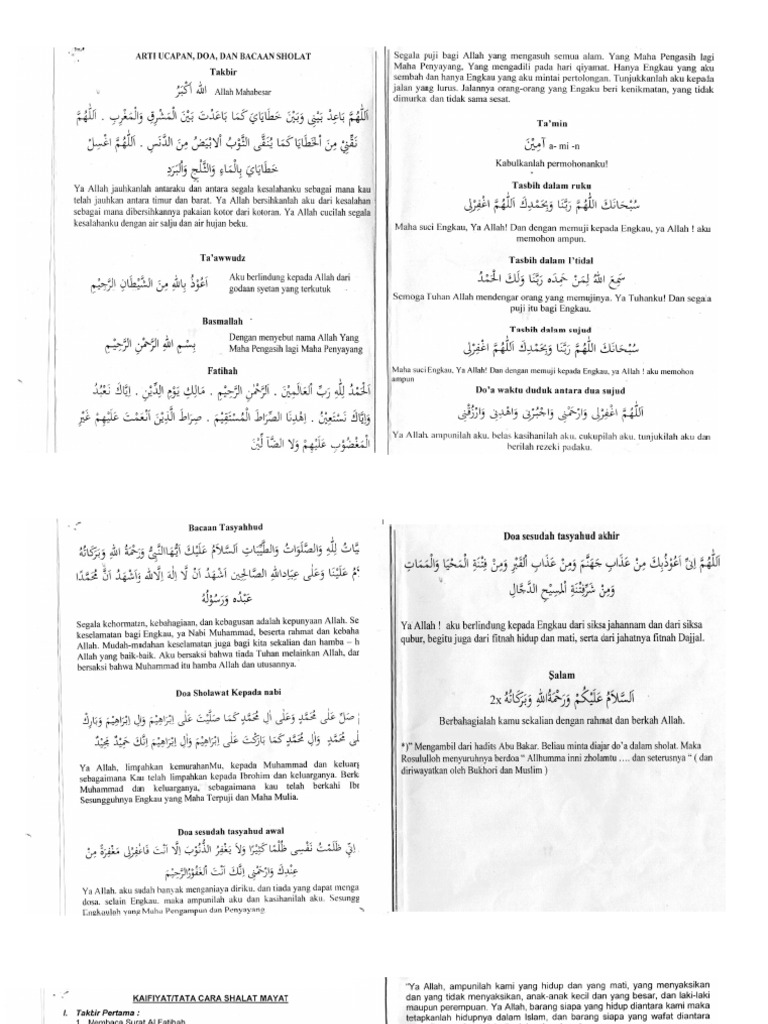 ARTI UCAPAN, DOA, DAN BACAAN SHOLAT
Takbir
اَللهُ اَكْبَرُ Allah Mahabesar
اَللّٰهُمَّ بَاعِدْ بَيْنِي وَبَيْنَ خَطَايَايَ كَمَا بَاعَدْتَ بَيْنَ الْمَشْرِقِ وَالْمَغْرِبِ . اَللّٰهُمَّ
نَقِّنِيْ مِنَ الْخَطَايَا كَمَا يُنَقَّى الثَّوْبُ الْاَبْيَضُ مِنَ الدَّنَسِ . اَللّٰهُمَّ اغْسِلْ
خَطَايَايَ بِالْمَاءِ وَالثَّلْجِ وَالْبَرَدِ
Ya Allah jauhkanlah antaraku dan antara segala kesalahanku sebagai mana kau
telah jauhkan antara timur dan barat. Ya Allah bersihkanlah aku dari kesalahan
sebagai mana dibersihkannya pakaian kotor dari kotoran. Ya Allah cucilah segala
kesalahanku dengan air salju dan air hujan beku.
Ta'awwudz
اَعُوْذُ بِاللهِ مِنَ الشَّيْطَانِ الرَّجِيْمِ
Aku berlindung kepada Allah dari
godaan syetan yang terkutuk
Basmallah
بِسْمِ اللهِ الرَّحْمٰنِ الرَّحِيْمِ
Dengan menyebut nama Allah Yang
Maha Pengasih lagi Maha Penyayang
Fatihah
اَلْحَمْدُ لِلّٰهِ رَبِّ الْعَالَمِيْنَ . اَلرَّحْمٰنِ الرَّحِيْمِ . مَالِكِ يَوْمِ الدِّيْنِ . اِيَّاكَ نَعْبُدُ
وَاِيَّاكَ نَسْتَعِيْنُ . اِهْدِنَا الصِّرَاطَ الْمُسْتَقِيْمَ . صِرَاطَ الَّذِيْنَ اَنْعَمْتَ عَلَيْهِمْ غَيْرِ
الْمَغْضُوْبِ عَلَيْهِمْ وَلَا الضَّآ لِّيْنَ
Segala puji bagi Allah yang mengasuh semua alam. Yang Maha Pengasih lagi
Maha Penyayang, Yang mengadili pada hari qiyamat. Hanya Engkau yang aku
sembah dan hanya Engkau yang aku mintai pertolongan. Tunjukkanlah aku kepada
jalan yang lurus. Jalannya orang-orang yang Engaku beri kenikmatan, yang tidak
dimurka dan tidak sama sesat.
Ta'min
آمِيْنَ a- mi -n
Kabulkanlah permohonanku!
Tasbih dalam ruku
سُبْحَانَكَ اللّٰهُمَّ رَبَّنَا وَبِحَمْدِكَ اَللّٰهُمَّ اغْفِرْلِى
Maha suci Engkau, Ya Allah! Dan dengan memuji kepada Engkau, ya Allah ! aku
memohon ampun.
Tasbih dalam I'tidal
سَمِعَ اللهُ لِمَنْ حَمِدَه رَبَّنَا وَلَكَ الْحَمْدُ
Semoga Tuhan Allah mendengar orang yang memujinya. Ya Tuhanku! Dan segala
puji itu bagi Engkau.
Tasbih dalam sujud
سُبْحَانَكَ اللّٰهُمَّ رَبَّنَا وَبِحَمْدِكَ اَللّٰهُمَّ اغْفِرْلِى
Maha suci Engkau, Ya Allah! Dan dengan memuji kepada Engkau, ya Allah ! aku memohon
ampun
Do'a waktu duduk antara dua sujud
اَللّٰهُمَّ اغْفِرْلِى وَارْحَمْنِى وَاجْبُرْنِى وَاهْدِنِى وَارْزُقْنِى
Ya Allah, ampunilah aku, belas kasihanilah aku, cukupilah aku, tunjukilah aku dan
berilah rezeki padaku.
Bacaan Tasyahhud
يَّاتُ لِلّٰهِ وَالصَّلَوَاتُ وَالطَّيِّبَاتُ اَلسَّلَامُ عَلَيْكَ اَيُّهَاالنَّبِيُّ وَرَحْمَةُ اللهِ وَبَرَكَاتُهُ
مُ عَلَيْنَا وَعَلَى عِبَادِاللهِ الصَّالِحِيْنَ اَشْهَدُ اَنْ لَّا اِلٰهَ اِلَّااللهُ وَاَشْهَدُ اَنَّ مُحَمَّدًا
عَبْدُه وَرَسُوْلُهُ
Segala kehormatzn, kebahagiaan, dan kebagusan adalah kepunyaan Allah. Se
keselamatan bagi Engkau, ya Nabi Muhammad, beserta rahmat dan kebaha
Allah. Mudah-madahan keselamatan juga bagi kita sekalian dan hamba – h
Allah yang baik-baik. Aku bersaksi bahwa tiada Tuhan melainkan Allah, dar
bersaksi bahwa Muhammad itu hamba Allah dan utusannya.
Doa Sholawat Kepada nabi
صَلِّ عَلٰى مُحَمَّدٍ وَعَلٰى اٰلِ مُحَمَّدٍ كَمَا صَلَّيْتَ عَلٰى اِبْرَاهِيْمَ وَاٰلِ اِبْرَاهِيْمَ وَبَارِكْ
لٰى مُحَمَّدٍ وَاٰلِ مُحَمَّدٍ كَمَا بَارَكْتَ عَلٰى اِبْرَاهِيْمَ وَاٰلِ اِبْرَاهِيْمَ اِنَّكَ حَمِيْدٌ مَجِيْدٌ
Ya Allah, limpahkan kemurahanMu, kepada Muhammad dan keluarg
sebagaimana Kau telah limpahkan kepada Ibrohim dan keluarganya. Berk
Muhammad dan keluarganya, sebagaimana kau telah berkahi Ibr
Sesungguhnya Engkau yang Maha Terpuji dan Maha Mulia.
Doa sesudah tasyahud awal
اِنِّى ظَلَمْتُ نَفْسِى ظُلْمًا كَثِيْرًا وَلَا يَغْفِرُ الذُّنُوْبَ اِلَّا اَنْتَ فَاغْفِرْلِى مَغْفِرَةً مِنْ
عِنْدِكَ وَارْحَمْنِى اِنَّكَ اَنْتَ الْغَفُوْرُالرَّحِيْمُ
Ya Allah, aku sudah banyak menganiaya diriku, dan tiada yang dapat menga
dosa, selain Engkau, maka ampunilah aku dan kasihanilah aku. Sesungg
Engkauloh yang Maha Pengampun dan Penyayang
Doa sesudah tasyahud akhir
اَللّٰهُمَّ اِنِّى اَعُوْذُبِكَ مِنْ عَذَابِ جَهَنَّمَ وَمِنْ عَذَابِ الْقَبْرِ وَمِنْ فِتْنَةِ الْمَحْيَا وَالْمَمَاتِ
وَمِنْ شَرِّفِتْنَةِ الْمَسِيْحِ الدَّجَّالِ
Ya Allah ! aku berlindung kepada Engkau dari siksa jahannam dan dari siksa
qubur, begitu juga dari fitnah hidup dan mati, serta dari jahatnya fitnah Dajjal.
Salam
اَلسَّلَامُ عَلَيْكُمْ وَرَحْمَةُاللهِ وَبَرَكَاتُهُ 2x
Berbahagialah kamu sekalian dengan rahmat dan berkah Allah.
*)" Mengambil dari hadits Abu Bakar. Beliau minta diajar do'a dalam sholat. Maka
Rosululloh menyuruhnya berdoa " Allhumma inni zholamtu .... dan seterusnya " ( dan
diriwayatkan oleh Bukhori dan Muslim )
KAIFIYAT/TATA CARA SHALAT MAYAT
I. Takbir Pertama :
1. Membaca Surat Al Fatihah
"Ya Allah, ampunilah kami yang hidup dan yang mati, yang menyaksikan
dan yang tidak menyaksikan, anak-anak kecil dan yang besar, dan laki-laki
maupun perempuan. Ya Allah, barang siapa yang hidup diantara kami maka
tetapkanlah hidupnya dalam Islam, dan barang siapa yang wafat diantara